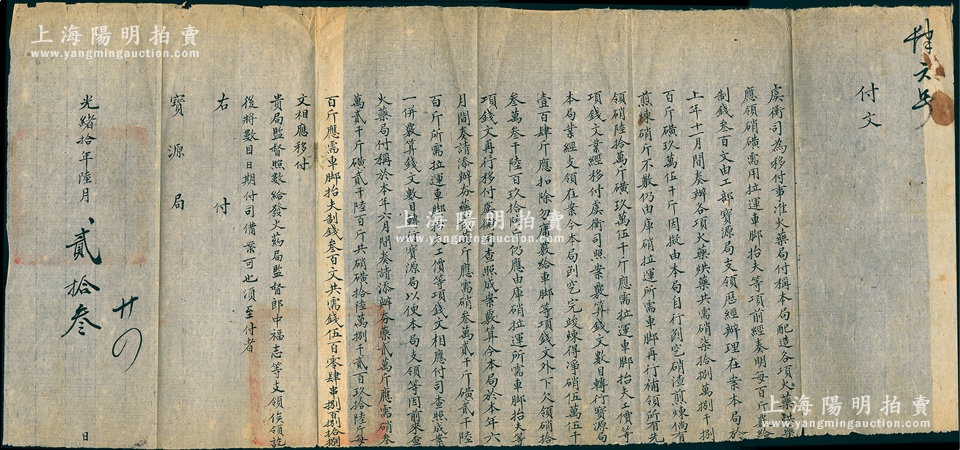 付文
虞衡司為移付事准火藥局付稱本局配造各項火藥
應領硝磺需用拉運車腳抬夫等項前經奏明每百斤
制錢叁百文由工部寶源局支領歷經辦理在案本局於
上年十一月間奏辦各項火藥烘藥共需硝柒拾捌萬捌千捌
百斤磺玖萬伍千斤因擬由本局自行刨空硝渣煎煉倘有
煎煉硝斤不敷仍由庫硝拉運所需車腳再行補領所有先
領硝陸拾萬斤磺玖萬伍千斤應需拉運車腳抬夫工價等
項錢文業經移付虞衡司照案覈算錢文數目轉行寶源局
本局業經支領在案今本局刨空完竣煉得淨硝伍萬伍千
壹百肆斤應扣除勿庸敷給車腳等項錢文外下欠領硝拾
叁萬叁千陸百玖拾陸斤仍應由庫硝拉運所需車腳抬夫等
項錢文再行移付虞衡司查照成案覈算今本局於本年六
月間奏請添辦夯藥貳萬斤應需硝叁萬貳千斤磺貳千陸
百斤所需拉運車腳抬夫工價等項錢文相應付司查照成案
一併覈算錢文數目轉行寶源局以便本局支領等因前來查
火藥局付稱於本年六月間奏請添辦夯藥貳萬斤應需硝叁
萬貳千斤磺貳千陸百斤共硝磺拾陸萬捌千貳百玖拾陸斤每
百斤應需車腳抬夫制錢叁百文共需錢伍百零肆串捌百捌拾捌
文相應移付
貴局監督照數給發火藥局監督郎中福志等支領俟領訖
後將數目日期付司備案可也須至付者
右付
寶源局
光緒拾年陸月貳拾叁日
廿四
上海陽明拍賣
www.yangmingauction.com
上海陽明拍賣
www.yangmingauction.com